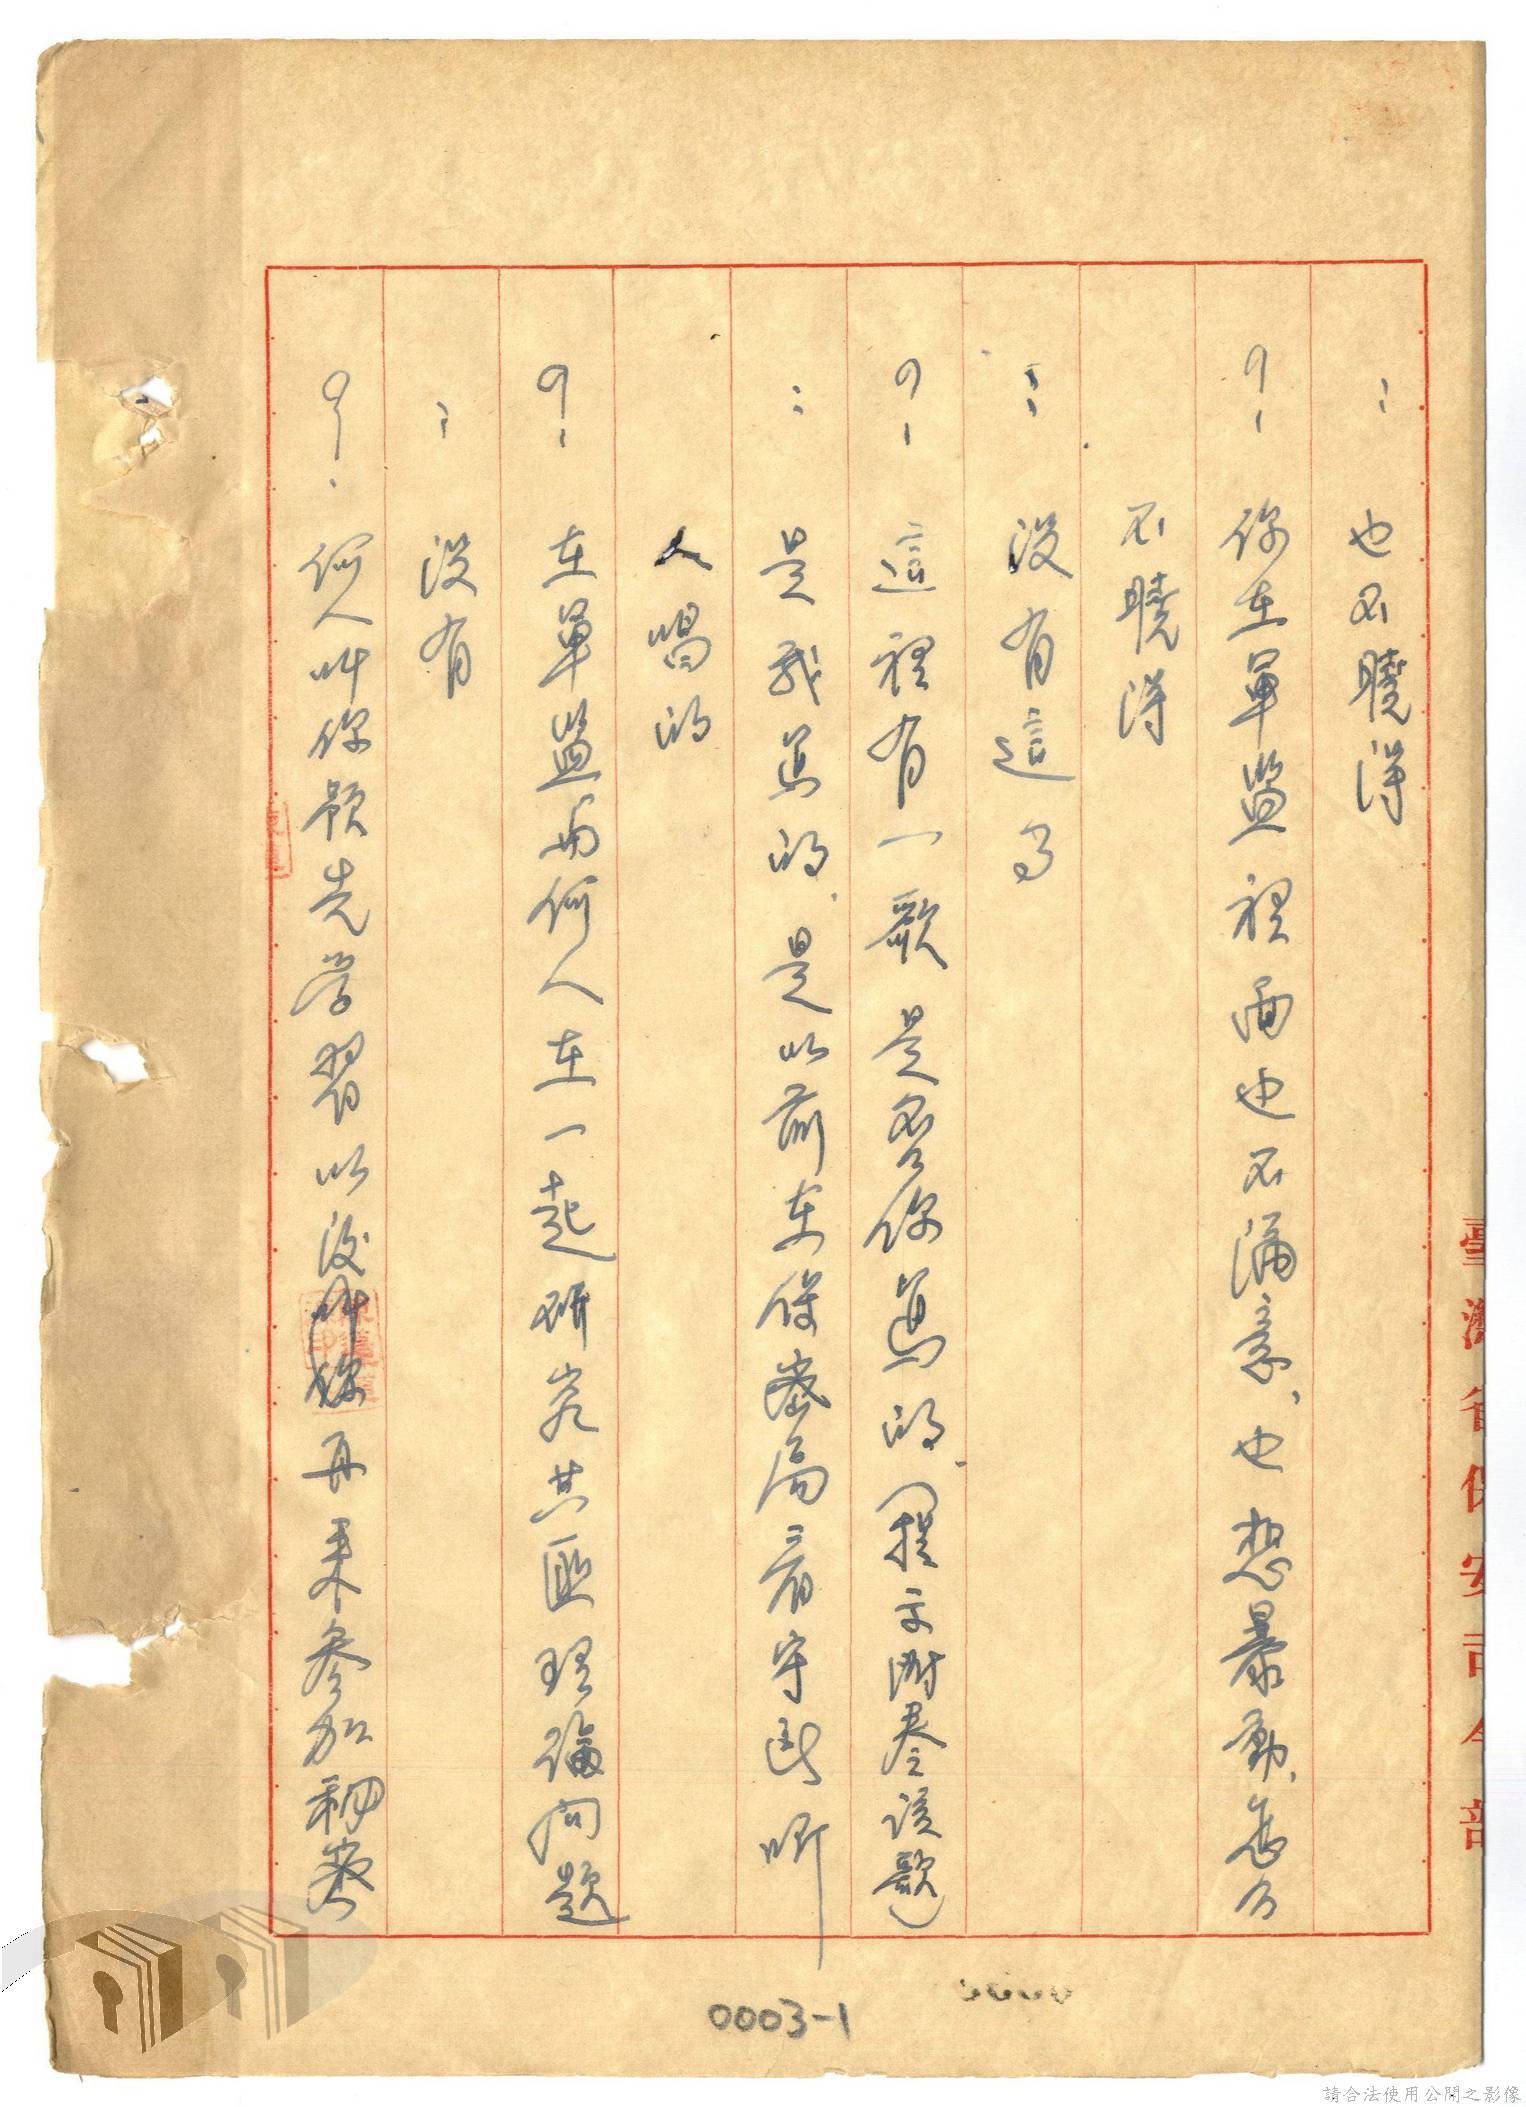 : 也不曉得
?: 你在軍監裡面也不滿意、也想暴動、怎麼
不曉得
: 沒有這事
?: 這裡有一歌是否你寫的、(提示附卷該歌)
: 是我寫的、是以前在保密局看守所聽
人唱的
?: 在軍監與何人在一起研究共匪理論問題
: 沒有
?: 何人叫你預先學習以後再來參加
臺灣省保安司令部
0003-1
請合法使用公開之影像